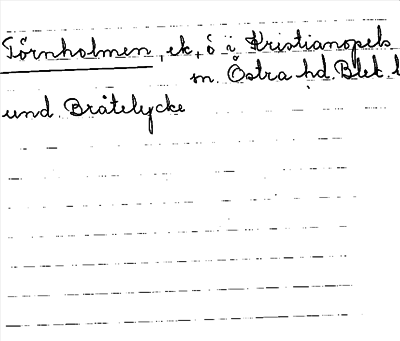 Törnholmen, ek, ö i Kristianopels
sn. Östra hd. Blek. l
und. Bråtelycke